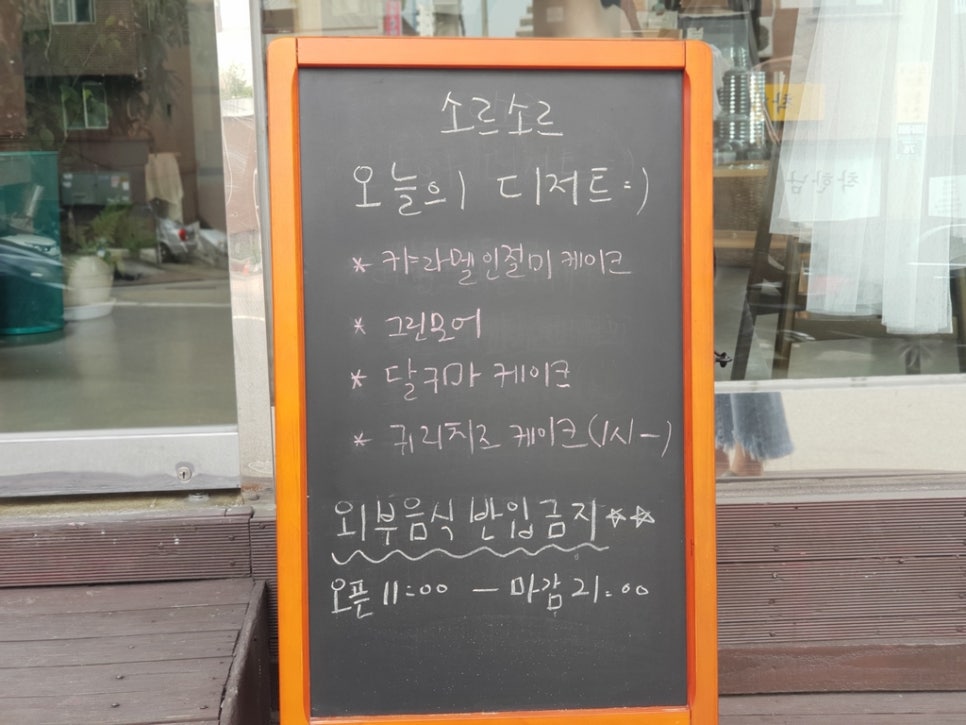 소르소르
오늘의 디저트:)
* 캬라멜인절미케이크
* 그린모어
* 달구마 케이크
* 귀리치즈 케이크(1시-)
외부음식 반입금지☆☆
오픈 11:00 - 마감 21:00